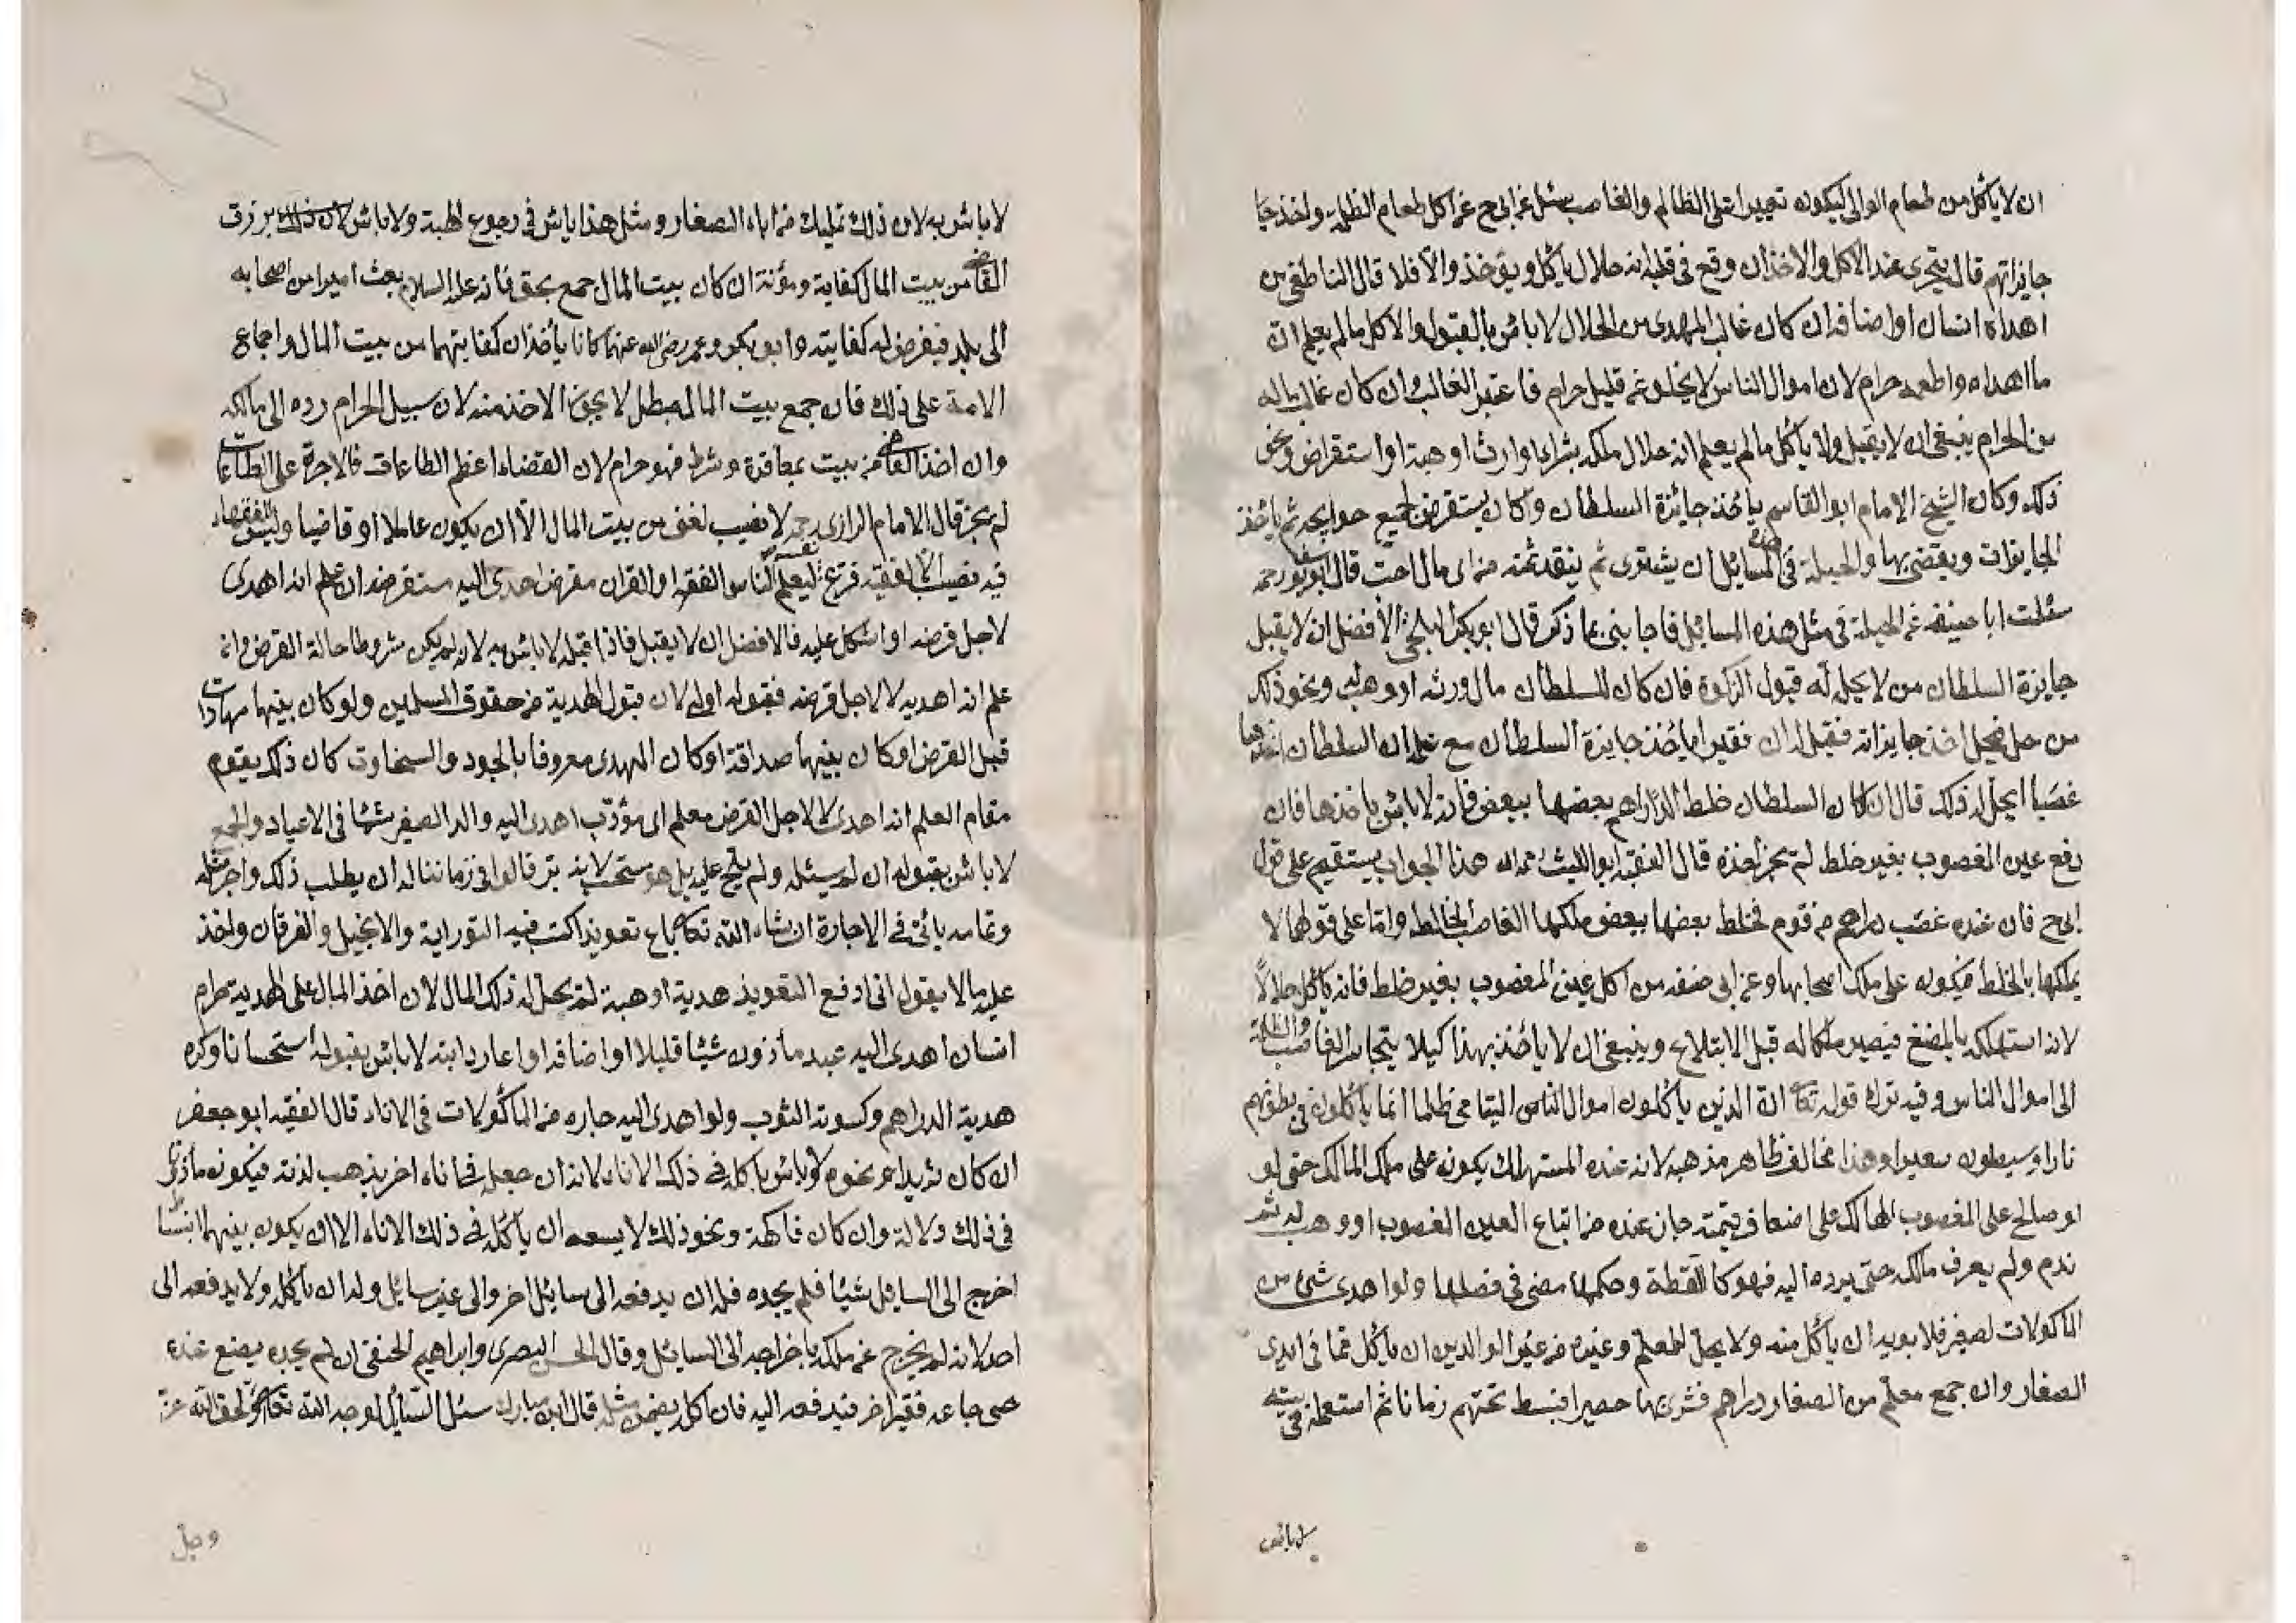 ان لا يأكل من طعام الوالى ليكون تعييرا على الظالم والغاصب سئل عن ابى ح عن اكل طعام الظلمة واخذ جا
جايزاتهم قال يتحرى عند الاكل والاخذ ان وقع فى قلبه انه حلال يأكل ويؤخذ والا فلا قال الناطفى من
اهداه انسان او اضافه ان كان غالب المهدى من الحلال لا بائس بالقبول والاكل مالم يعلم ان
ما اهداه واطعمه حرام لان اموال الناس لا يخلو عن قليل حرام فاعتبر الغالب وان كان غالب ماله
من الحرام ينبغى ان لا يقبل ولا يأكل مالم يعلم انه حلال ملكه بشراء او ارث او هبة او استقراض ونحو
ذلك وكان الشيخ الامام ابو القاسم يأخذ جائزة السلطان وكان يستقرض لجميع حوايجه ثم يأخذ
الجايزات ويقضى بها والحيلة فى هذه المسائل ان يشترى ثم ينقد ثمنه من اى مال احب قال ابو يوسف رحمه
سئلت ابا حنيفه عن الحيلة فى مثل هذه المسائل فاجابنى بما ذكر قال ابو بكر البلخى الافضل ان لا يقبل
جايزة السلطان من لا يحل له قبول الزكوة فان كان للسلطان مال ورثه او وهب له ونحو ذلك
من حل فيحل اخذ جايزاته فقيل له ان فقيرا يأخذ جايزة السلطان مع علمه ان السلطان اخذها
غصبا ايحل له ذلك قال ان كان السلطان خلط الدراهم بعضها ببعض فانه لا بائس باخذها فان
دفع عين المغصوب بغير خلط لم يجز اخذه قال الفقيه ابو الليث رحمه الله هذا الجواب يستقيم على قول
ابى ح فان عنده غصب دراهم من قوم فخلط بعضها ببعض ملكها الغاصب بالخلط واما على قولهما لا
يملكها بالخلط فيكون على ملك اصحابها وعن ابى حنيفه من اكل عين المغصوب بغير خلط فانه يأكل حلالا
لانه استهلكه بالمضغ فيصير ملكا له قبل الابتلاع وينبغى ان لا يأخذ بهذا كيلا يتجاسر الغاصب والظلمة
الى اموال الناس وفيه ترك قوله تعا ان الذين يأكلون اموال الناس اليتامى ظلما انما يأكلون فى بطونهم
نارا وسيصلون سعيرا وهذا مخالف ظاهر مذهبه لانه عنده المستهلك يكون على ملك المالك حتى لو
لو صالح على المغصوب الهالك على اضعاف قيمته جاز عنده من اتباع العين المغصوب او وهب له ثم
ندم ولم يعرف مالكه حتى يرده اليه فهو كاللقطة وحكمها مضى فى فصلها ولو اهدى شئ من
المأكولات لصغير فلابويه ان يأكل منه ولا يحل لمعلم وغيره من غير الوالدين ان يأكل مما فى ايدى
الصغار وان جمع معلم من الصغار دراهم فشرى بها حصيرا فبسط تحتهم زمانا ثم استعمله فى بيته
لا بائس
لا بائس به لان ذلك تمليك من اباء الصغار ومثل هذا يأتى فى رجوع الهبة ولا بائس برزق
القاضى من بيت المال كفاية ومؤنة ان كان بيت المال جمع بحق فانه عليه السلام بعث اميرا من اصحابه
الى بلد فيفرض له كفايته وابو بكر وعمر رضى الله عنهما كانا يأخذان كفايتهما من بيت المال واجماع
الامة على ذلك فان جمع بيت المال بباطل لا يجوز الاخذ منه لان سبيل الحرام رده الى مالكه
وان اخذ القاضى من بيت بمعاقدة وشرط فهو حرام لان القضاء اعظم الطاعات فالاجرة على الطاعات
لم يجز قال الامام الرازى رحمه لا نصيب لغنى من بيت المال الا ان يكون عاملا او قاضيا وليس للفقهاء
فيه نصيب الا لفقيه فرغ نفسه ليعلم الناس الفقه او القران مقرض اهدى اليه مستقرضه ان علم انه اهدى
لاجل قرضه او اشكل عليه فالافضل ان لا يقبل فاذا قبل لا بائس به لانه لم يكن مشروطا حالة القرض وان
علم انه اهديه لا لاجل قرضه فقبوله اولى لان قبول الهدية من حقوق المسلمين ولو كان بينهما مهادات
قبل القرض او كان بينهما صداقة او كان المهدى معروفا بالجود والسخاوت كان ذلك يقوم
مقام العلم انه اهدى لا لاجل القرض معلم اى مؤدب اهدى اليه والد الصغير شيئا فى الاعياد والجمع
لا بائس بقبوله ان لم يسئله ولم يلح عليه بل هو مستحب لانه بر قالوا فى زماننا له ان يطلب ذلك واجر مثله
وتمامه يأتى فى الاجارة ان شاء الله تعا باع تعويذا كتب فيه التوراية والانجيل والفرقان واخذ
عليه مالا يقول انى ادفع التعويذ هدية او هبة لم يحل له ذلك المال لان اخذ المال على الهدية حرام
انسان اهدى اليه عبد مأذون شيئا قليلا او اضافه او اعار دابته لا بائس بقبوله استحسانا وكره
هدية الدراهم وكسوته الثوب ولو اهدى اليه جاره من المأكولات فى الاناء قال الفقيه ابو جعفر
ان كان ثريدا او نحوه لا بائس بأكله فى ذلك الاناء لانه ان جعله فى اناء اخر يذهب لذته فيكون مأذونا
فى ذلك دلالة وان كان فاكهة ونحو ذلك لا يسعه ان يأكله فى ذلك الاناء الا ان يكون بينهما انبساط
اخرج الى السائل شيئا فلم يجده فله ان يدفعه الى سائل اخر والى غير سايل وله ان يأكله ولا يدفعه الى
احد لانه لم يخرج عن ملكه باخراجه الى السائل وقال الحسن البصرى وابراهيم الحنفى ان لم يجده يضع عنده
حتى جاءه فقير اخر فيدفعه اليه فان اكله يضمن مثله قال ابن مبارك سئل السائل لوجه الله تعا او لحق الله عز
وجل